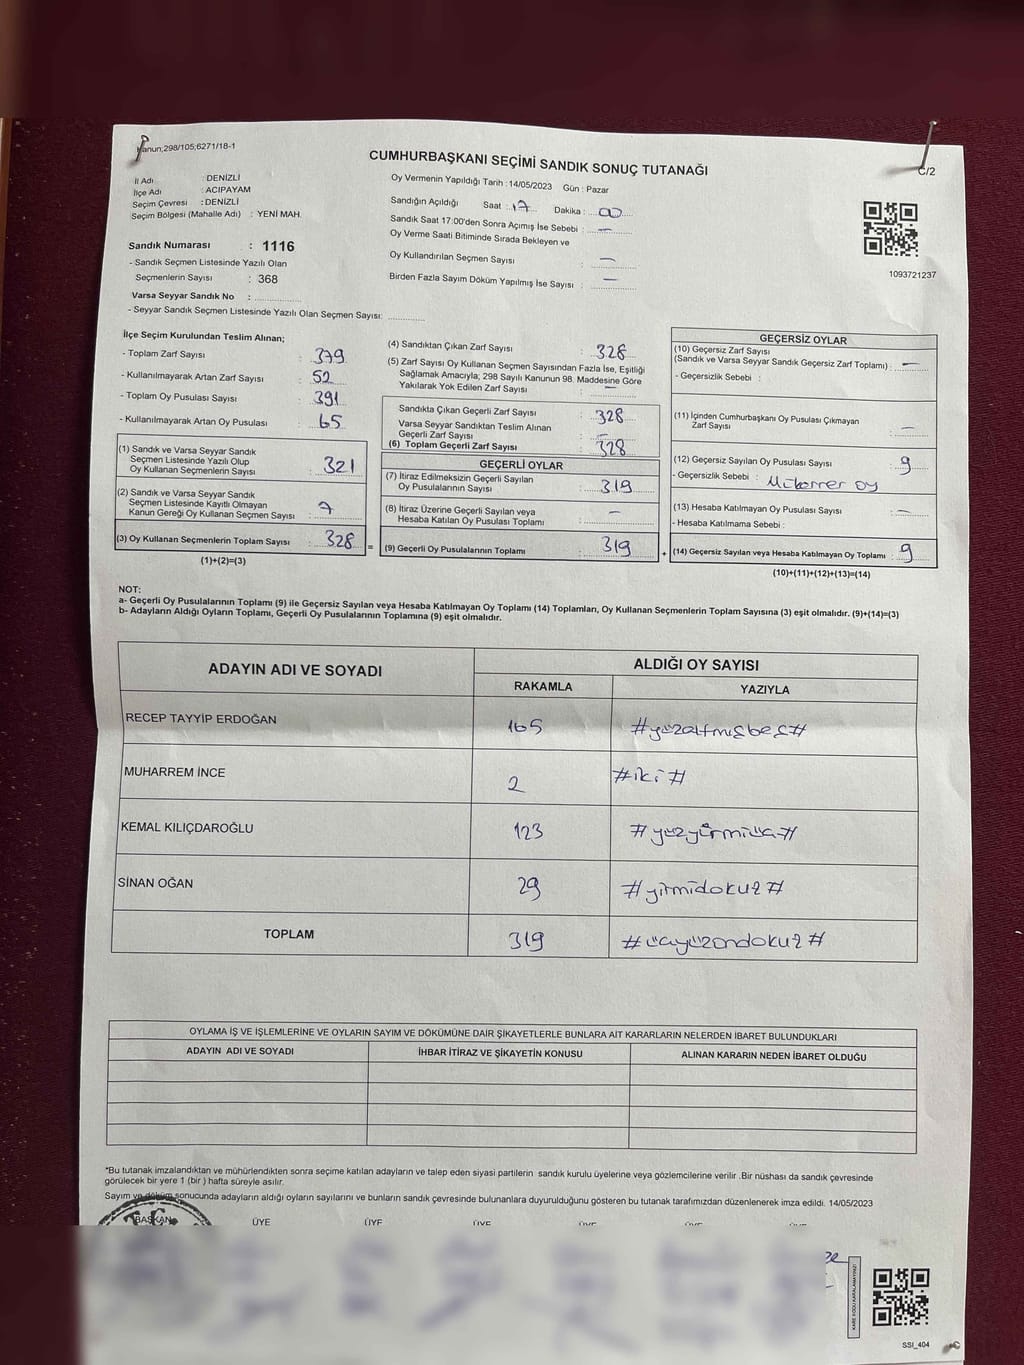 Kanun;298/105;6271/18-1
CUMHURBAŞKANI SEÇİMİ SANDIK SONUÇ TUTANAĞI
C/2
İl Adı : DENİZLİ
İlçe Adı : ACIPAYAM
Seçim Çevresi : DENİZLİ
Seçim Bölgesi (Mahalle Adı) : YENİ MAH.
Sandık Numarası : 1116
- Sandık Seçmen Listesinde Yazılı Olan
Seçmenlerin Sayısı : 368
Varsa Seyyar Sandık No :
- Seyyar Sandık Seçmen Listesinde Yazılı Olan Seçmen Sayısı:
Oy Vermenin Yapıldığı Tarih : 14/05/2023 Gün : Pazar
Sandığın Açıldığı Saat : 17 Dakika : 00
Sandık Saat 17:00'den Sonra Açımış İse Sebebi : —
Oy Verme Saati Bitiminde Sırada Bekleyen ve
Oy Kullandırılan Seçmen Sayısı : —
Birden Fazla Sayım Döküm Yapılmış İse Sayısı : —
1093721237
İlçe Seçim Kurulundan Teslim Alınan;
- Toplam Zarf Sayısı : 379
- Kullanılmayarak Artan Zarf Sayısı : 52
- Toplam Oy Pusulası Sayısı : 391
- Kullanılmayarak Artan Oy Pusulası : 65
(1) Sandık ve Varsa Seyyar Sandık
Seçmen Listesinde Yazılı Olup
Oy Kullanan Seçmenlerin Sayısı : 321
(2) Sandık ve Varsa Seyyar Sandık
Seçmen Listesinde Kayıtlı Olmayan
Kanun Gereği Oy Kullanan Seçmen Sayısı : 7
(3) Oy Kullanan Seçmenlerin Toplam Sayısı : 328
(1)+(2)=(3)
(4) Sandıktan Çıkan Zarf Sayısı : 328
(5) Zarf Sayısı Oy Kullanan Seçmen Sayısından Fazla İse, Eşitliği
Sağlamak Amacıyla; 298 Sayılı Kanunun 98. Maddesine Göre
Yakılarak Yok Edilen Zarf Sayısı : —
Sandıkta Çıkan Geçerli Zarf Sayısı : 328
Varsa Seyyar Sandıktan Teslim Alınan
Geçerli Zarf Sayısı : —
(6) Toplam Geçerli Zarf Sayısı : 328
GEÇERLİ OYLAR
(7) İtiraz Edilmeksizin Geçerli Sayılan
Oy Pusulalarının Sayısı : 319
(8) İtiraz Üzerine Geçerli Sayılan veya
Hesaba Katılan Oy Pusulası Toplamı : —
= (9) Geçerli Oy Pusulalarının Toplamı : 319
GEÇERSİZ OYLAR
(10) Geçersiz Zarf Sayısı
(Sandık ve Varsa Seyyar Sandık Geçersiz Zarf Toplamı) : —
- Geçersizlik Sebebi :
(11) İçinden Cumhurbaşkanı Oy Pusulası Çıkmayan
Zarf Sayısı : —
(12) Geçersiz Sayılan Oy Pusulası Sayısı : 9
- Geçersizlik Sebebi : Mükerrer oy
(13) Hesaba Katılmayan Oy Pusulası Sayısı : —
- Hesaba Katılmama Sebebi :
+ (14) Geçersiz Sayılan veya Hesaba Katılmayan Oy Toplamı : 9
(10)+(11)+(12)+(13)=(14)
NOT:
a- Geçerli Oy Pusulalarının Toplamı (9) ile Geçersiz Sayılan veya Hesaba Katılmayan Oy Toplamı (14) Toplamları, Oy Kullanan Seçmenlerin Toplam Sayısına (3) eşit olmalıdır. (9)+(14)=(3)
b- Adayların Aldığı Oyların Toplamı, Geçerli Oy Pusulalarının Toplamına (9) eşit olmalıdır.
ADAYIN ADI VE SOYADI ALDIĞI OY SAYISI
RAKAMLA YAZIYLA
RECEP TAYYİP ERDOĞAN 165 #yüzaltmışbeş#
MUHARREM İNCE 2 #iki#
KEMAL KILIÇDAROĞLU 123 #yüzyirmiüç#
SİNAN OĞAN 29 #yirmidokuz#
TOPLAM 319 #üçyüzondokuz#
OYLAMA İŞ VE İŞLEMLERİNE VE OYLARIN SAYIM VE DÖKÜMÜNE DAİR ŞİKAYETLERLE BUNLARA AİT KARARLARIN NELERDEN İBARET BULUNDUKLARI
ADAYIN ADI VE SOYADI İHBAR İTİRAZ VE ŞİKAYETİN KONUSU ALINAN KARARIN NEDEN İBARET OLDUĞU
*Bu tutanak imzalandıktan ve mühürlendikten sonra seçime katılan adayların ve talep eden siyasi partilerin sandık kurulu üyelerine veya gözlemcilerine verilir .Bir nüshası da sandık çevresinde
görülecek bir yere 1 (bir ) hafta süreyle asılır.
Sayım ve döküm sonucunda adayların aldığı oyların sayılarını ve bunların sandık çevresinde bulunanlara duyurulduğunu gösteren bu tutanak tarafımızdan düzenlenerek imza edildi. 14/05/2023
BAŞKAN ÜYE ÜYE ÜYE ÜYE ÜYE ÜYE
KARE KODU KARALAMAYINIZ!
SSI_404